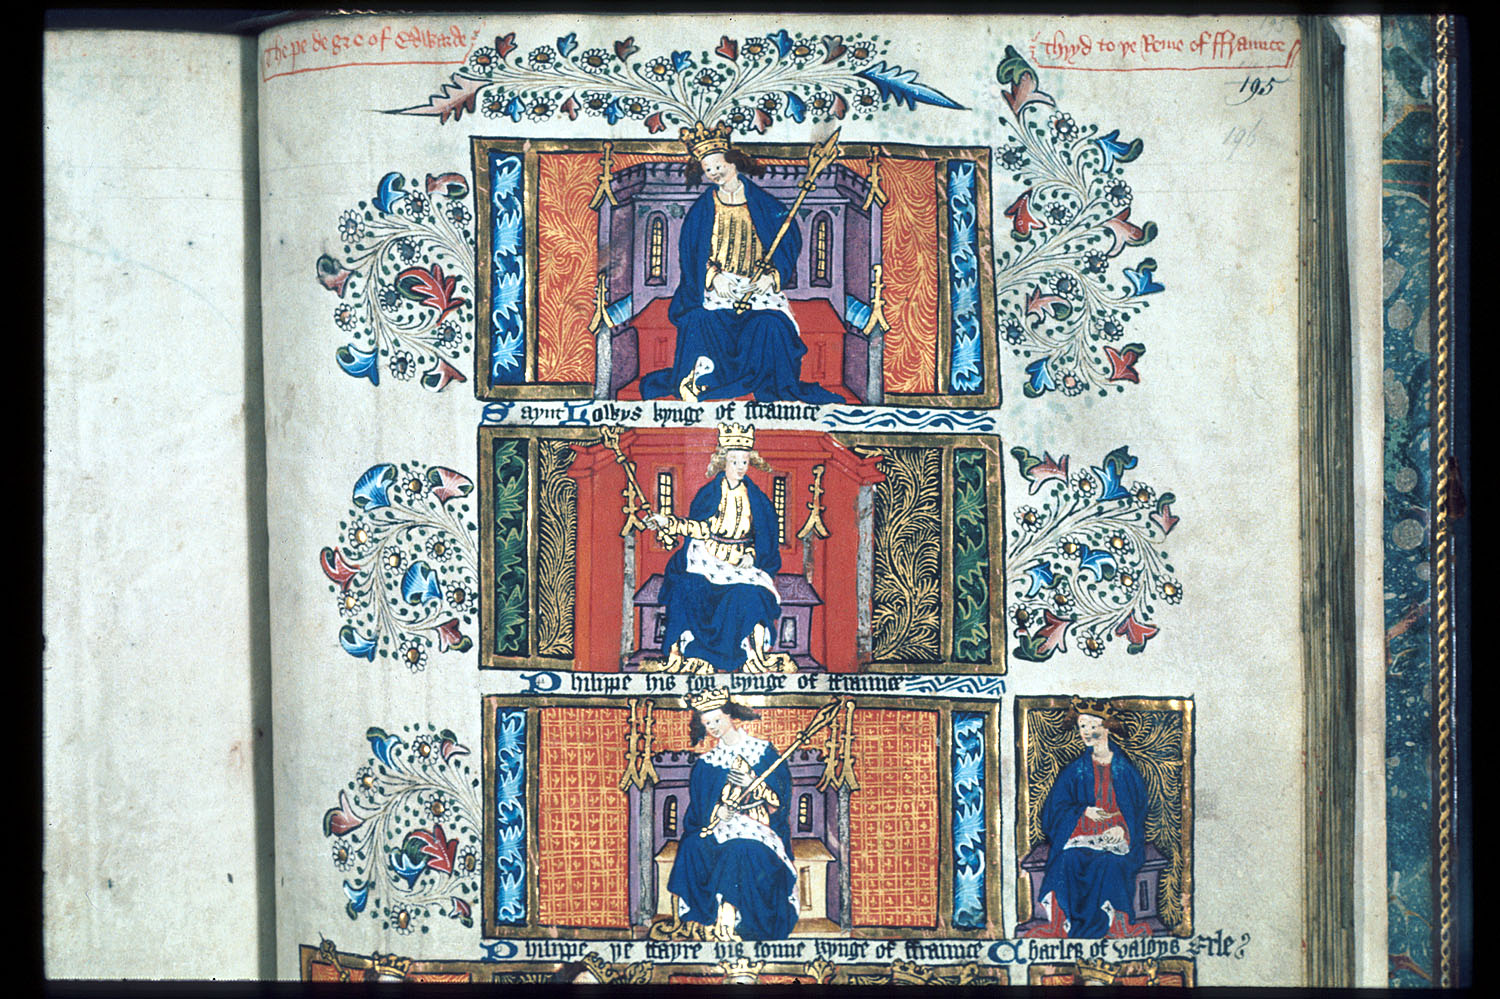 The pe de gre of Edwarde
thyrd to ye Reme of ffraunce
195
196
Saynt Lowys kynge of ffraunce
Philippe his son kynge of ffraunce
Philippe ye ffayre his sonne kynge of ffraunce Charles of valoys Erle